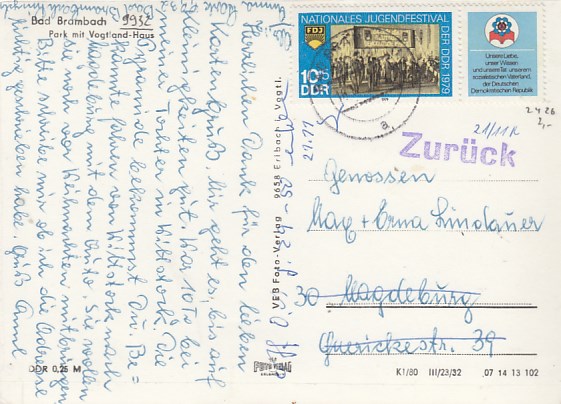 Bad Brambach
9932
Park mit Vogtland-Haus
Herzlichen Dank für den lieben
Kartengruß. Mir geht es, bis auf
Kleinigkeiten gut. War 10 T. bei
meiner Tochter in Wittstock. Die
Freunde bekommst Du. Be=
kannte fahren von Wittstock nach
Magdeburg mit dem Auto. Sie wollen
noch vor Weihnachten mitbringen
Bitte schreibe mir ob ich die Adresse
richtig geschrieben habe. Gruß Anna
DDR 0,25 M
VEB Foto-Verlag 9658 Erlbach i. Vogtl.
FOTO VERLAG
NATIONALES JUGENDFESTIVAL
DER DDR 1979
FDJ
10+5
DDR
Unsere Liebe,
unser Wissen
und unsere Tat unserem
sozialistischen Vaterland,
der Deutschen
Demokratischen Republik
2426
2,-
21/11 R
Zurück
Genossen
Max + Erna Lindauer
30 Magdeburg
Guerickestr. 39
K1/80 III/23/32 07 14 13 102